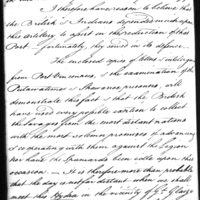 I therefore have reason to believe that
the British & Indians depended much upon
this artillery to assist in the reduction of that
Post – fortunately, they served in its defence –
The enclosed copies of letters & intelligence
from Post Vincennes, & the examination of the
Potawatimes & Shawanoe prisoners, will
demonstrate this fact & that the British
have used every possible exertion to collect
the Savages from the most distant nations
with the most solemn promises of advancing
& co operating with them against the Legion
nor have the Spaniards been idle upon this
occasion – It is therefore more than probable
that the day is not far distant when we shall
meet this Hydra in the vicinity of Gd Glaize